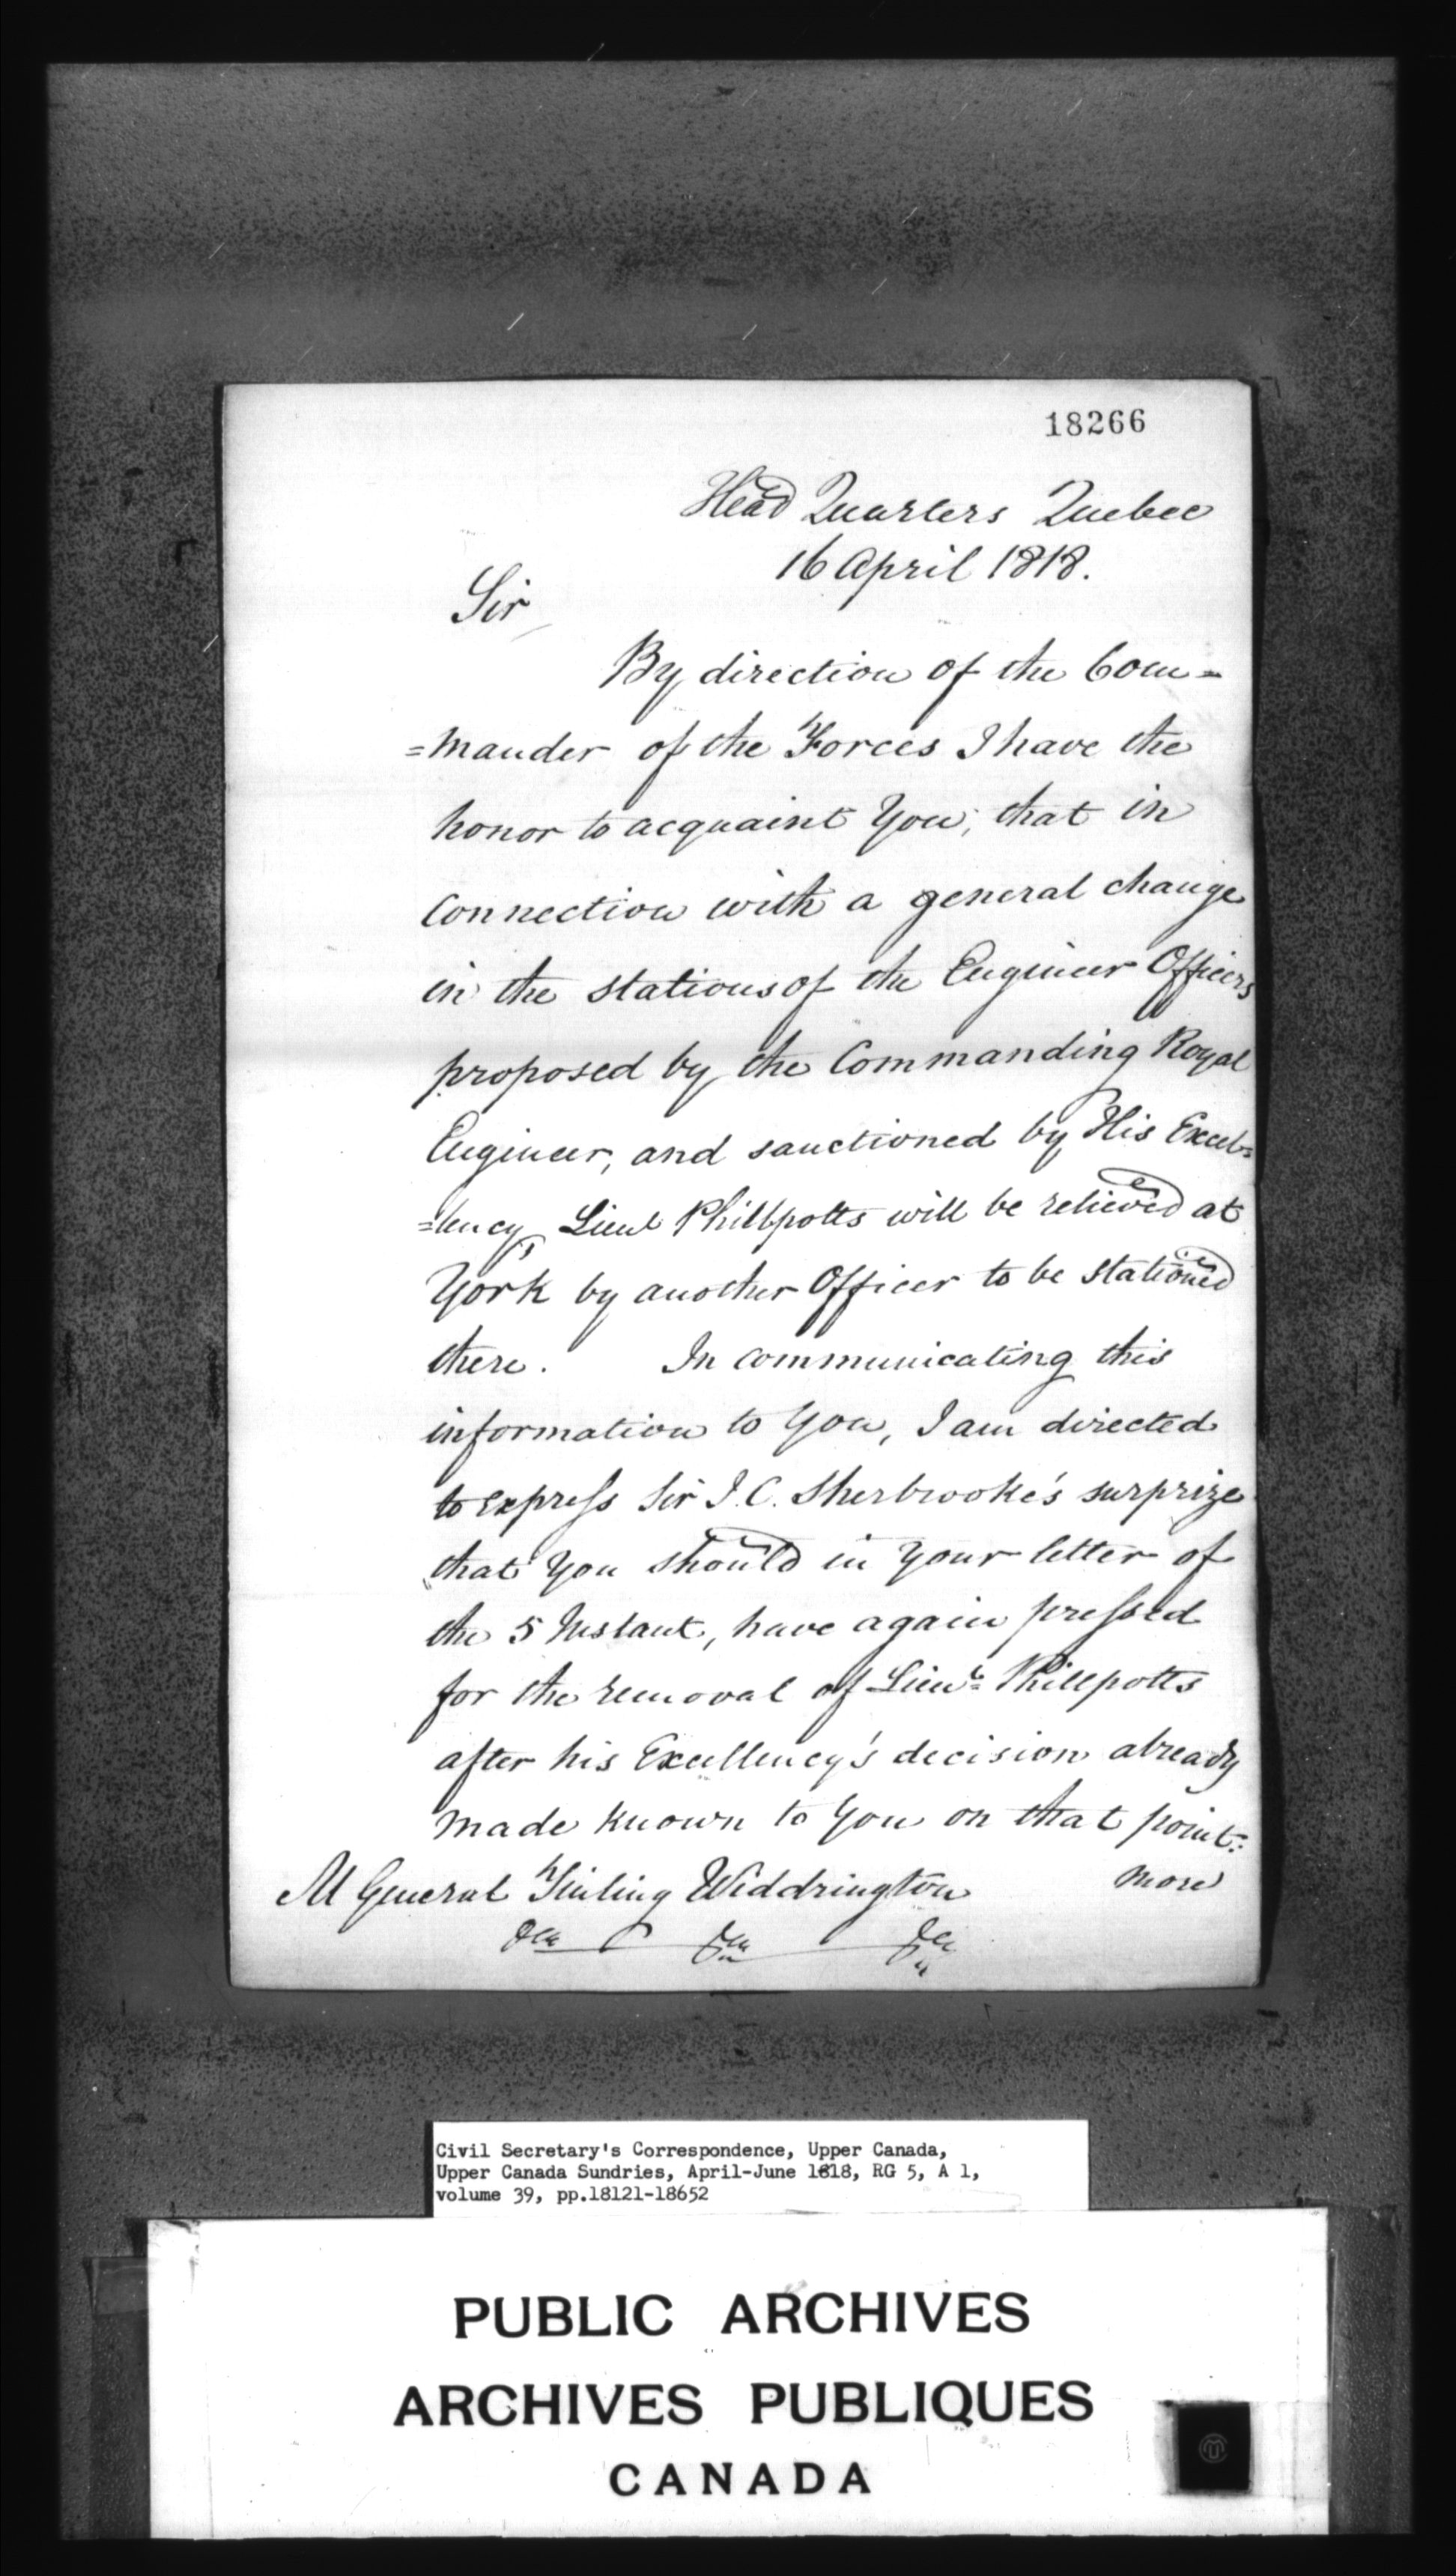 18266
Head Quarters Quebec
16 April 1818.
Sir
By direction of the Com=
=mander of the Forces I have the
honor to acquaint You, that in
Connection with a general change
in the stations of the Engineer Officers
proposed by the Commanding Royal
Engineer, and sanctioned by His Excel=
=lency, Lieut Phillpotts will be relieved at
York by another Officer to be stationed
there. In communicating this
information to You, I am directed
to express Sir J. C. Sherbrooke's surprize
that You should in Your letter of
the 5 Instant, have again pressed
for the removal of Lieut. Phillpotts
after his Excellency's decision already
made known to You on that point:
more
M General Tinling Widdrington
&c &c &c
Civil Secretary's Correspondence, Upper Canada,
Upper Canada Sundries, April-June 1818, RG 5, A 1,
volume 39, pp.18121-18652
PUBLIC ARCHIVES
ARCHIVES PUBLIQUES
CANADA